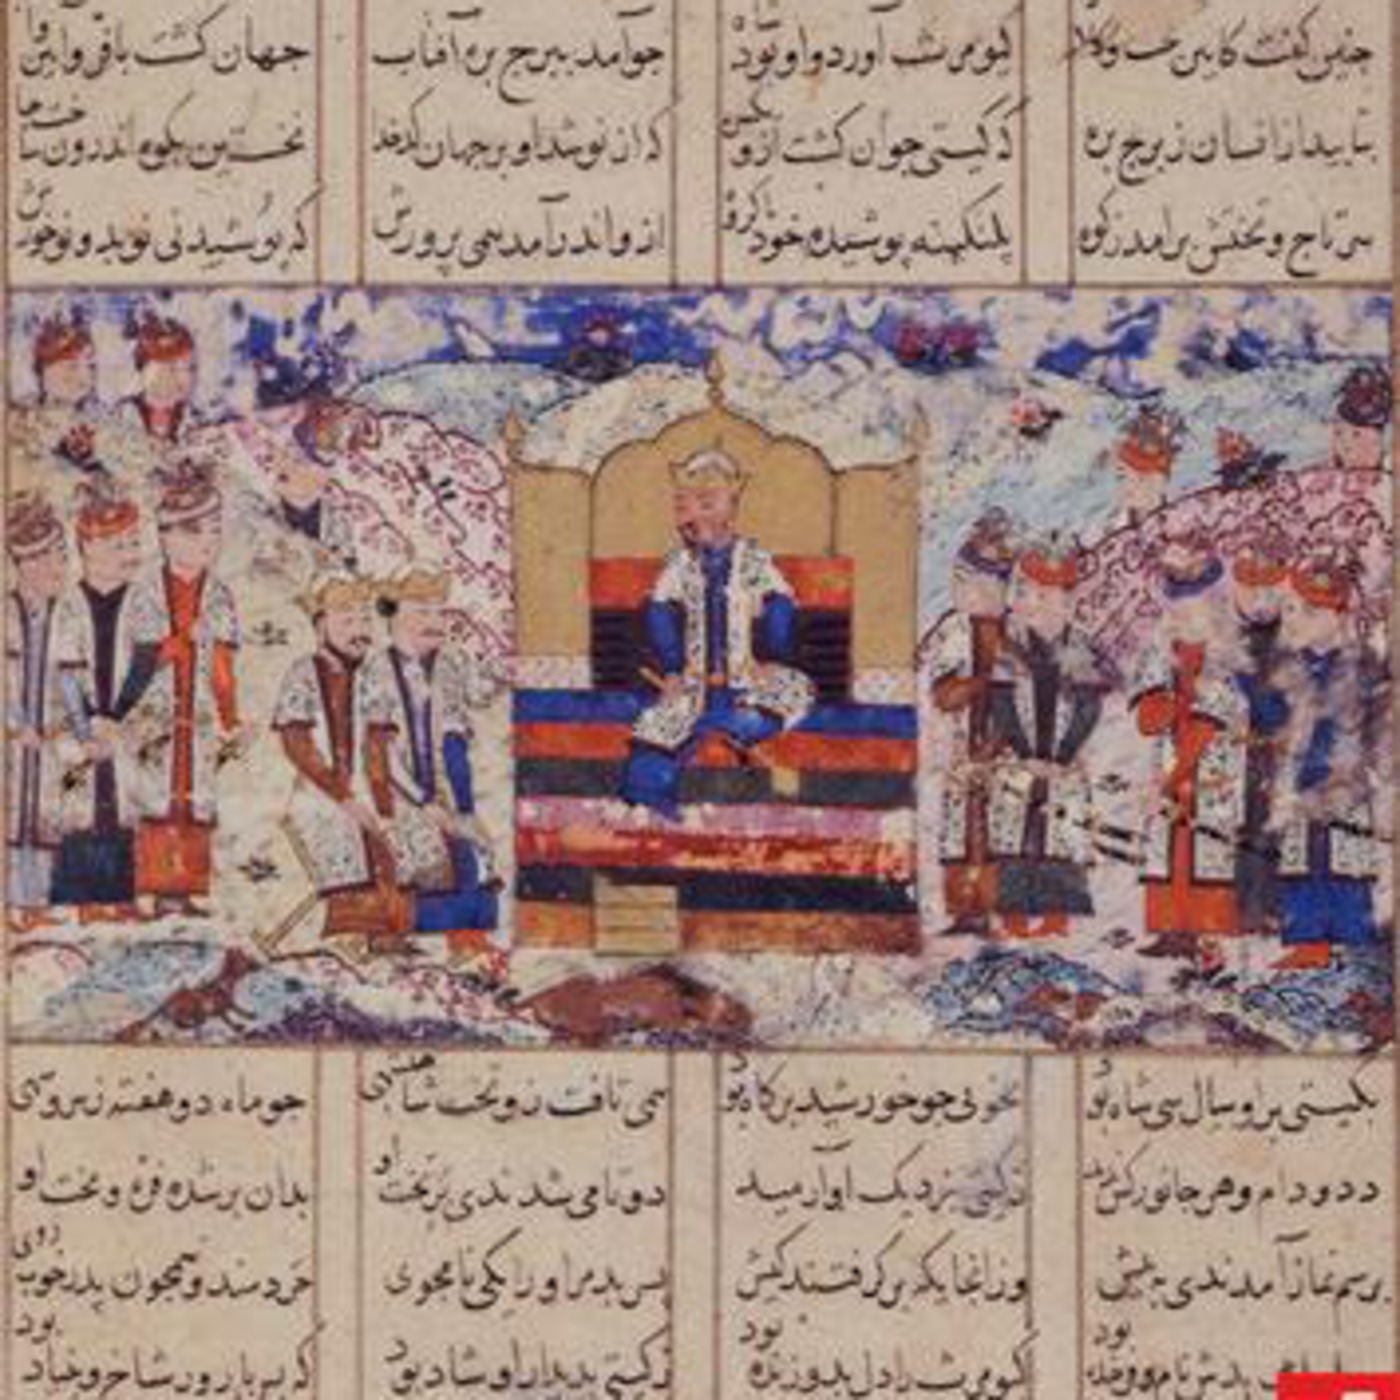 چنین گفت کایین تخت وکلاه کیومرث آورد واو بود شاه جوآمد ببرج بره آفتاب جهان کشت بافر وآیین وآب
بتابید ازانسان زبرج بره که کیتی جوان کشت ازو یکسره که ازنو شد او بر جهان کدخدای نخستین بکوه اندرون ساخت جای
سر تاج وتختش برامد زکوه پلنکینه پوشیده خود با کروه ازو اندرآمد همی پرورش که پوشیدنی نو بد ونو خورش
بکیتی براوسال سی شاه بود بخوبی جو خورشید بر کاه بود همی تافت زو تخت شاهنشهی جو ماه دوهفته زسرو سهی
دد ودام وهر جانور کش بدید زکیتی نزدیک اوآرمید دوتا می شدندی بر تخت او بدان برشده فره وبخت او
برسم نماز آمدندی بپیش وزانجایکه برکرفتند کیش پسر بد مراورا یکی نامجوی خردمند وهمجون پدر خوب روی
کیومرث را دل بدو زنده بود زکیتی بدیدار او شاد بود که بس بارور شاخ وبنیاد بود